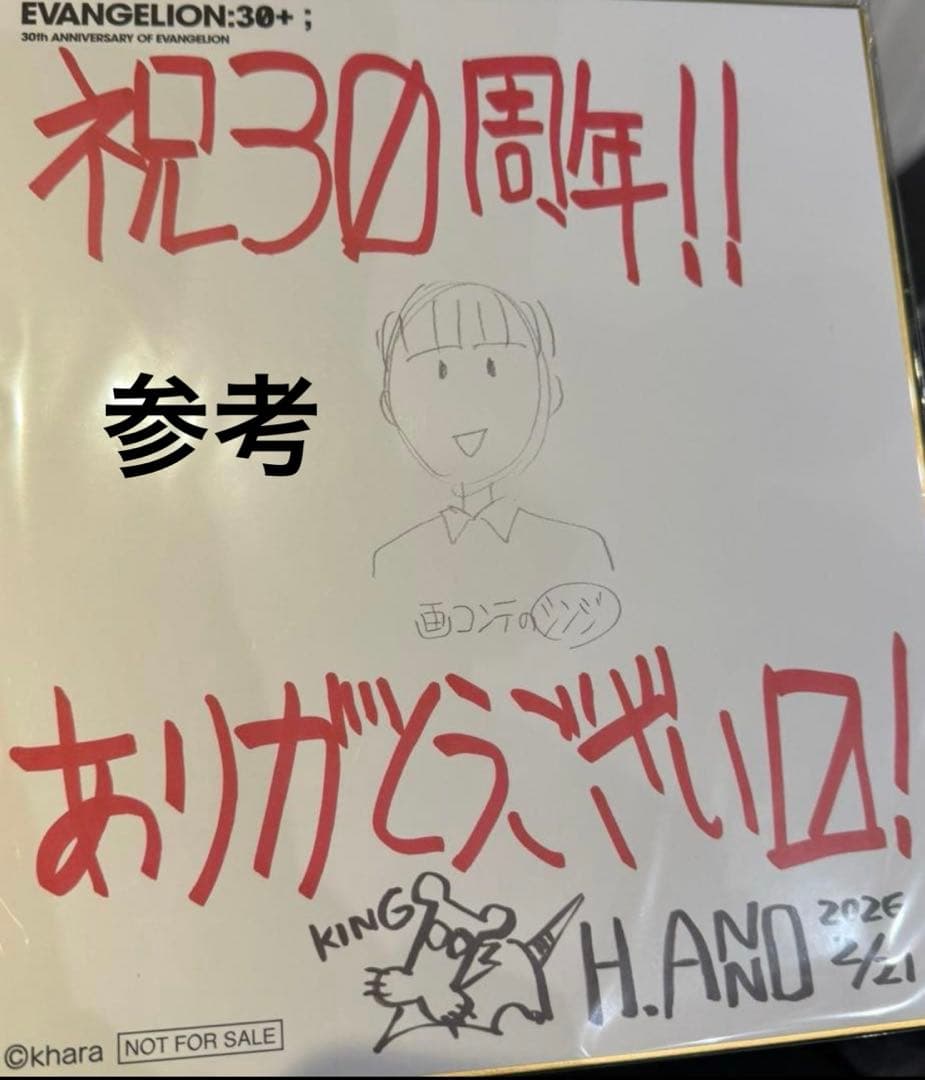 EVANGELION:30+;
30th ANNIVERSARY OF EVANGELION
祝30周年!!
参考
画コンテのシンジ
ありがとうございⅡ!
KING
H.ANNO
2026
2/21
©khara
NOT FOR SALE